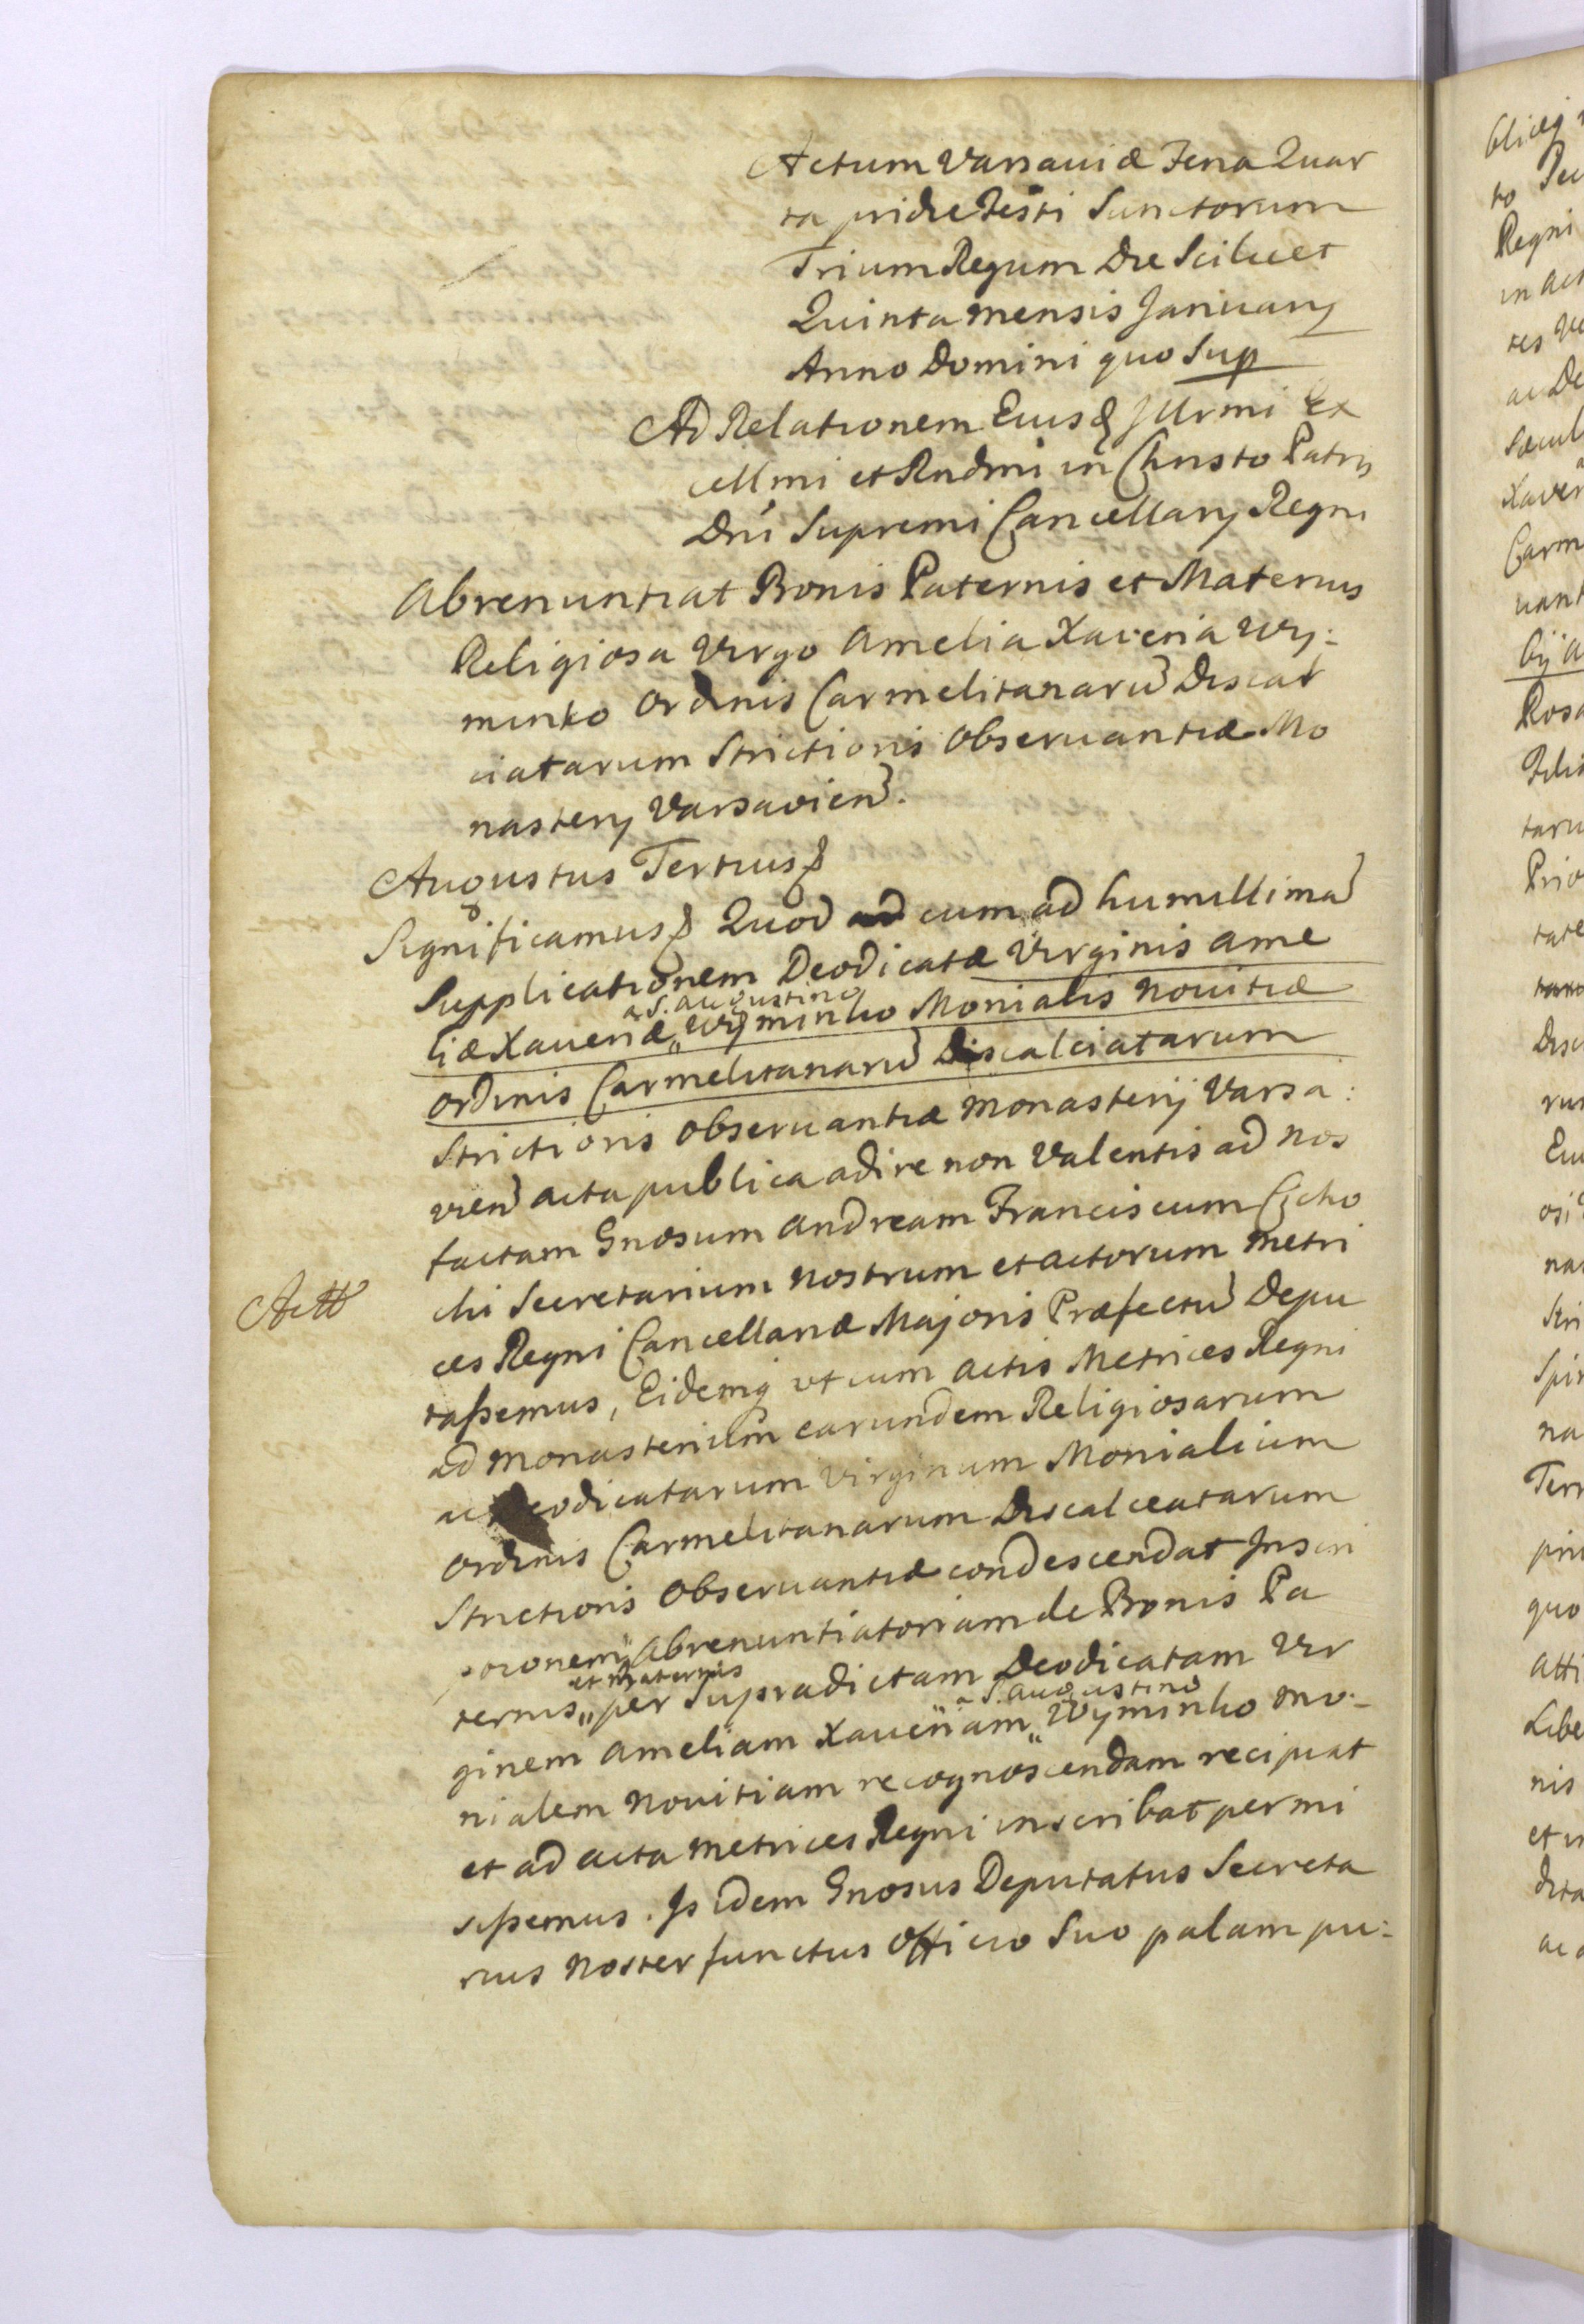 Actum Varsaviæ Feria Quar
ta pridie Festi Sanctorum
Trium Regum Die Scilicet
Quinta mensis Januarij
Anno Domini quo Sup
Ad Relationem Eiusd Illrmi Ex
cellmi et Rndmi in Christo Patris
Dni Supremi Cancellarij Regni
Abrenuntiat Bonis Paternis et Maternis
Religiosa Virgo Amelia Xaveria Wy:
minko Ordinis Carmelitanaru Discal
ciatarum Strictioris Observantiæ Mo
nasterij Varsavien.
Augustus Tertius
Significamus Quod ad cum ad humillima
Supplicationem Deodicatæ Virginis Ame
a S. Augustino
liæ Xaveriæ,, Wyminko Monialis Novitiæ
Ordinis Carmelitanaru Discalciatarum
Strictioris Observantiæ Monasterij Varsa:
vien acta publica adire non Valentis ad Nos
factam Gnosum Andream Franciscum Cicho
Actt
cki Secretarium Nostrum et Actorum Metri
ces Regni Cancellariæ Majoris Præfectu Depu
tassemus, Eidemq ut cum Actis Metrices Regni
ad Monasterium earundem Religiosarum
ac Deodicatarum Virginum Monialium
Ordinis Carmelitanarum Discalceatarum
Strictioris Observantiæ condescendat Inscri
ptionem Abrenuntiatoriam de Bonis Pa
et Maternis
ternis,, per Supradictam Deodicatam Vir
a S. Augustino
ginem Ameliam Xaveriam,, Wyminko Mo-
nialem Novitiam recognoscendam recipiat
et ad acta Metrices Regni inscribat permi
sissemus. Is idem Gnosus Deputatus Secreta
rius Noster functus Officio Suo palam pu: